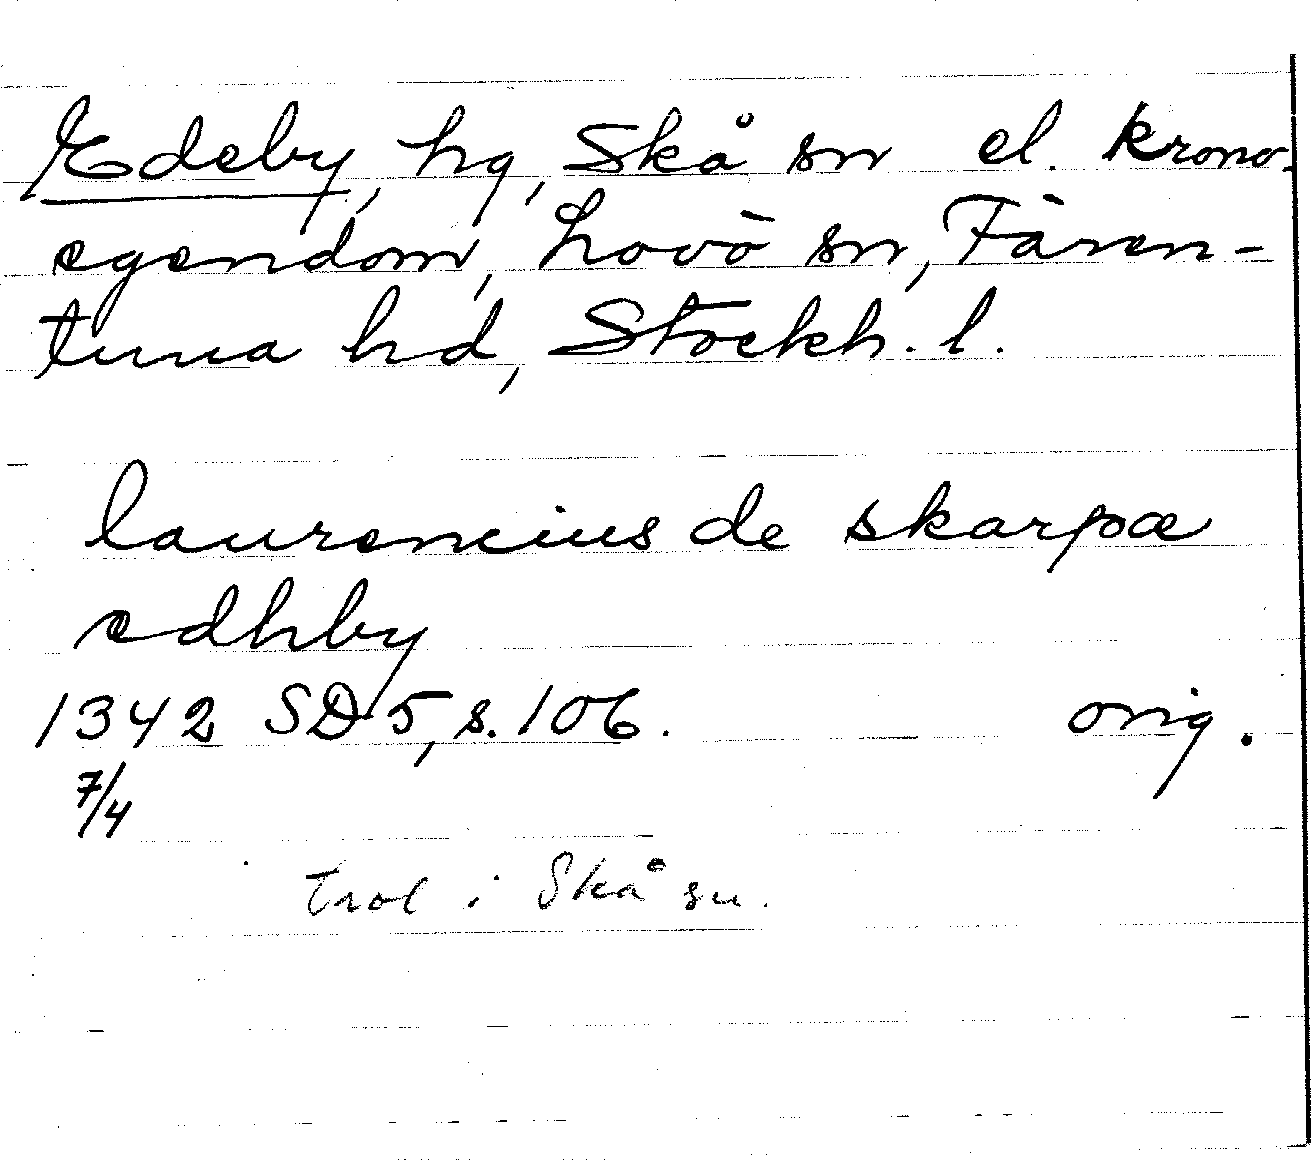 Edeby, hg, Skå sn el. krono-
egendom, Lovö sn, Fären-
tuna hd, Stockh. l.
laurencius de skarpæ
edhby
1342 SD 5, s. 106. orig.
7/4
trol i Skå sn.